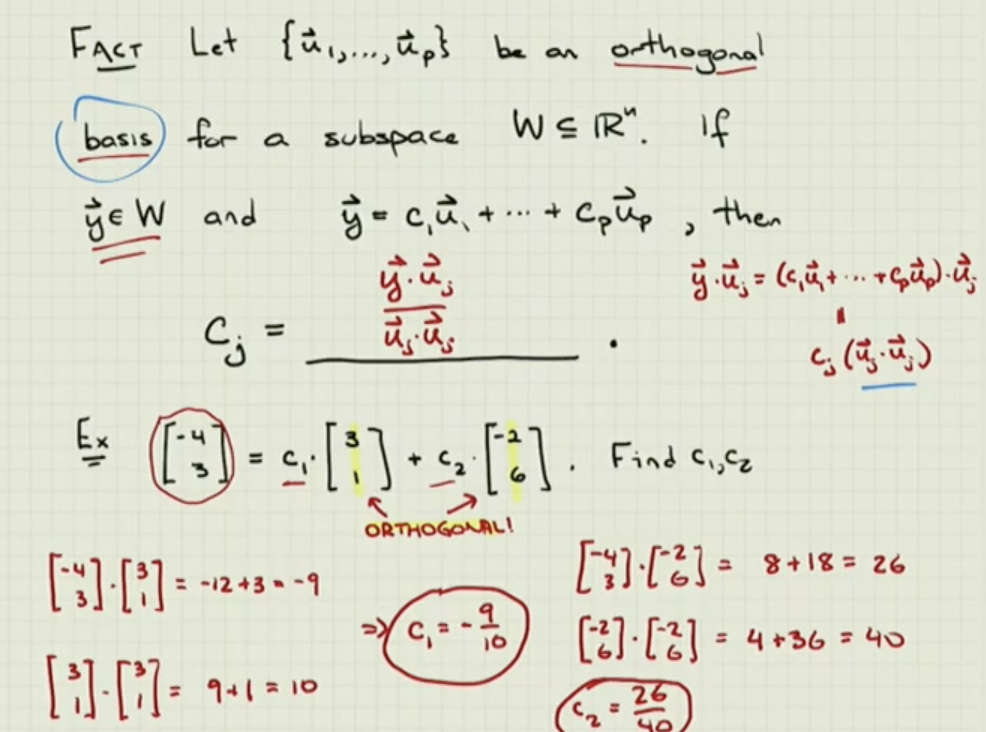 FACT Let {u⃗₁,...,u⃗ₚ} be an orthogonal
basis for a subspace W ⊆ ℝⁿ. If
y⃗ ∈ W and y⃗ = c₁u⃗₁ + ··· + cₚu⃗ₚ , then
cⱼ = (y⃗·u⃗ⱼ)/(u⃗ⱼ·u⃗ⱼ) .
y⃗·u⃗ⱼ = (c₁u⃗₁+ ··· +cₚu⃗ₚ)·u⃗ⱼ
=
cⱼ(u⃗ⱼ·u⃗ⱼ)
Ex [-4 3] = c₁·[3 1] + c₂·[-2 6]. Find c₁,c₂
ORTHOGONAL!
[-4 3]·[3 1] = -12+3 = -9
[3 1]·[3 1] = 9+1 = 10
⇒ c₁ = -9/10
[-4 3]·[-2 6] = 8+18 = 26
[-2 6]·[-2 6] = 4+36 = 40
c₂ = 26/40